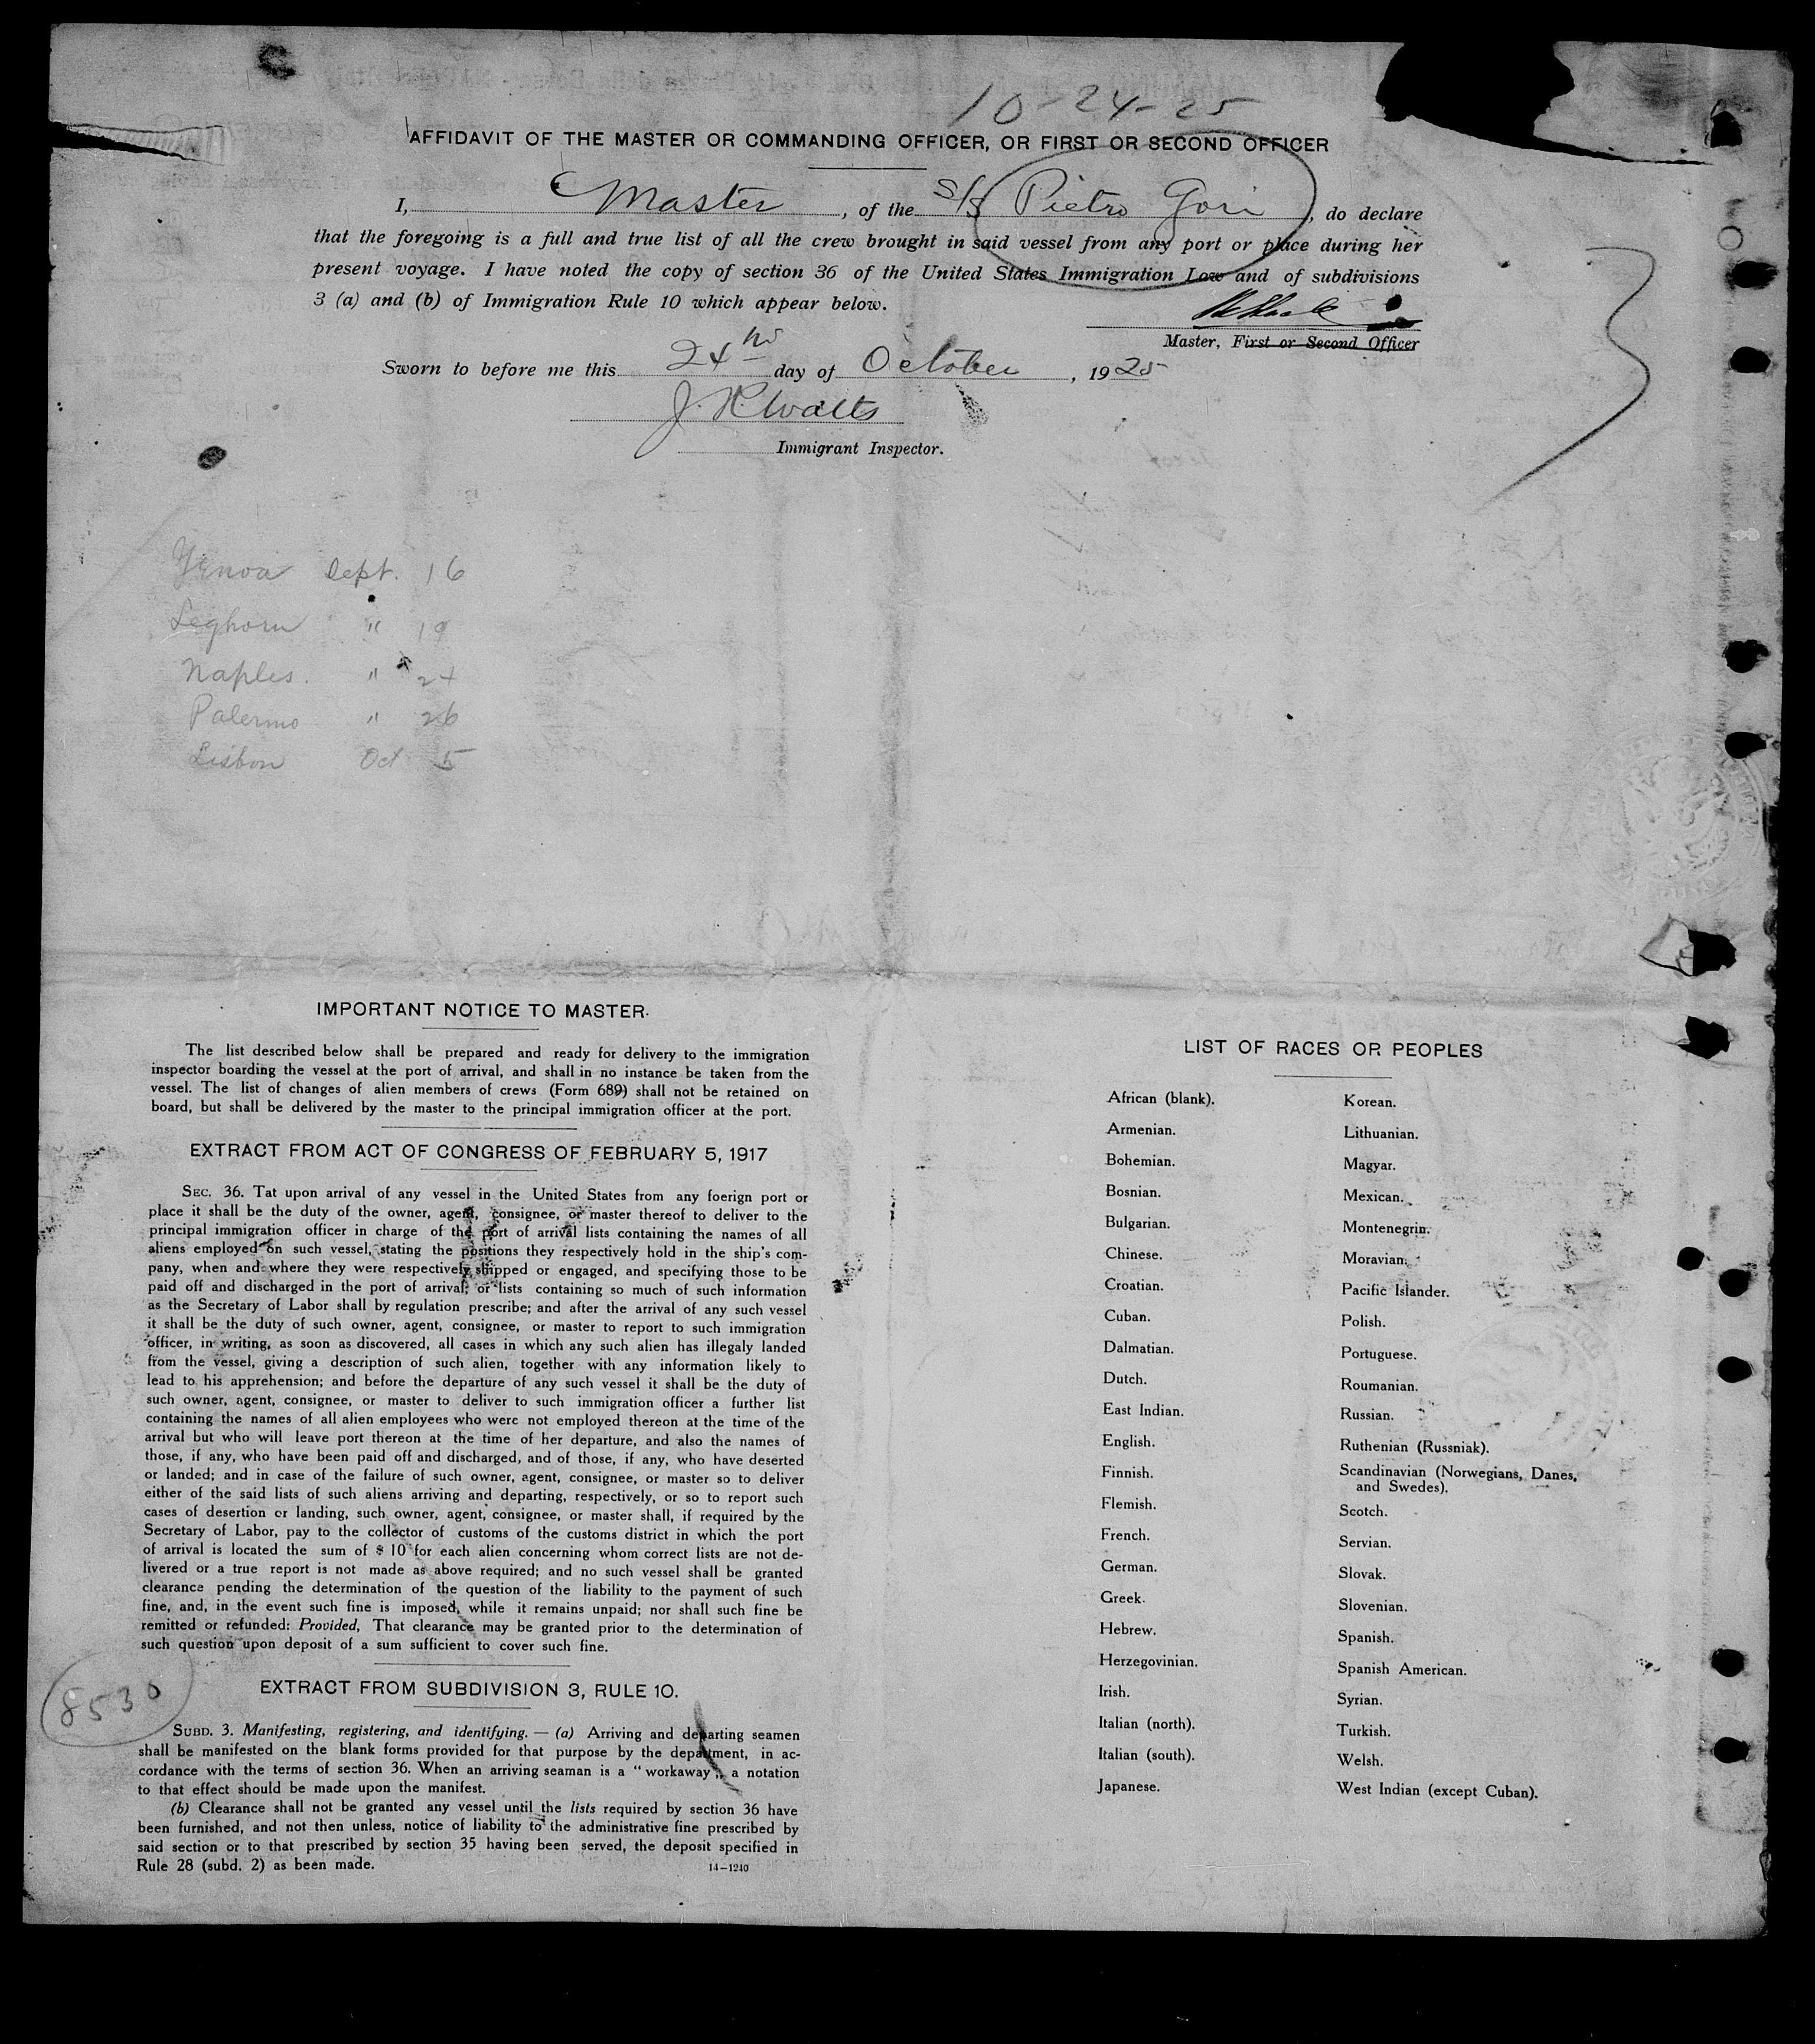 10-24-25
AFFIDAVIT OF THE MASTER OR COMMANDING OFFICER, OR FIRST OR SECOND OFFICER
I, Master, of the S/S Pietro Gori, do declare
that the foregoing is a full and true list of all the crew brought in said vessel from any port or place during her
present voyage. I have noted the copy of section 36 of the United States Immigration Law and of subdivisions
3 (a) and (b) of Immigration Rule 10 which appear below.
Master, First or Second Officer
Sworn to before me this 24th day of October, 1925
Immigrant Inspector.
Genoa Sept. 16
Leghorn " 19
Naples. " 24
Palermo " 26
Lisbon Oct 5
IMPORTANT NOTICE TO MASTER.
The list described below shall be prepared and ready for delivery to the immigration
inspector boarding the vessel at the port of arrival, and shall in no instance be taken from the
vessel. The list of changes of alien members of crews (Form 689) shall not be retained on
board, but shall be delivered by the master to the principal immigration officer at the port.
EXTRACT FROM ACT OF CONGRESS OF FEBRUARY 5, 1917
SEC. 36. Tat upon arrival of any vessel in the United States from any foerign port or
place it shall be the duty of the owner, agent, consignee, or master thereof to deliver to the
principal immigration officer in charge of the port of arrival lists containing the names of all
aliens employed on such vessel, stating the positions they respectively hold in the ship's com-
pany, when and where they were respectively shipped or engaged, and specifying those to be
paid off and discharged in the port of arrival; or lists containing so much of such information
as the Secretary of Labor shall by regulation prescribe; and after the arrival of any such vessel
it shall be the duty of such owner, agent, consignee, or master to report to such immigration
officer, in writing, as soon as discovered, all cases in which any such alien has illegaly landed
from the vessel, giving a description of such alien, together with any information likely to
lead to his apprehension; and before the departure of any such vessel it shall be the duty of
such owner, agent, consignee, or master to deliver to such immigration officer a further list
containing the names of all alien employees who were not employed thereon at the time of the
arrival but who will leave port thereon at the time of her departure, and also the names of
those, if any, who have been paid off and discharged, and of those, if any, who have deserted
or landed; and in case of the failure of such owner, agent, consignee, or master so to deliver
either of the said lists of such aliens arriving and departing, respectively, or so to report such
cases of desertion or landing, such owner, agent, consignee, or master shall, if required by the
Secretary of Labor, pay to the collector of customs of the customs district in which the port
of arrival is located the sum of $ 10 for each alien concerning whom correct lists are not de-
livered or a true report is not made as above required; and no such vessel shall be granted
clearance pending the determination of the question of the liability to the payment of such
fine, and, in the event such fine is imposed, while it remains unpaid; nor shall such fine be
remitted or refunded: Provided, That clearance may be granted prior to the determination of
such question upon deposit of a sum sufficient to cover such fine.
8530
EXTRACT FROM SUBDIVISION 3, RULE 10.
SUBD. 3. Manifesting, registering, and identifying. — (a) Arriving and departing seamen
shall be manifested on the blank forms provided for that purpose by the department, in ac-
cordance with the terms of section 36. When an arriving seaman is a "workaway", a notation
to that effect should be made upon the manifest.
(b) Clearance shall not be granted any vessel until the lists required by section 36 have
been furnished, and not then unless, notice of liability to the administrative fine prescribed by
said section or to that prescribed by section 35 having been served, the deposit specified in
Rule 28 (subd. 2) as been made.
14-1240
LIST OF RACES OR PEOPLES
African (blank).
Armenian.
Bohemian.
Bosnian.
Bulgarian.
Chinese.
Croatian.
Cuban.
Dalmatian.
Dutch.
East Indian.
English.
Finnish.
Flemish.
French.
German.
Greek.
Hebrew.
Herzegovinian.
Irish.
Italian (north).
Italian (south).
Japanese.
Korean.
Lithuanian.
Magyar.
Mexican.
Montenegrin.
Moravian.
Pacific Islander.
Polish.
Portuguese.
Roumanian.
Russian.
Ruthenian (Russniak).
Scandinavian (Norwegians, Danes,
and Swedes).
Scotch.
Servian.
Slovak.
Slovenian.
Spanish.
Spanish American.
Syrian.
Turkish.
Welsh.
West Indian (except Cuban).